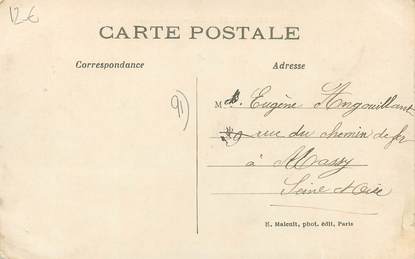 12 €
CARTE POSTALE
Correspondance
Adresse
91)
M. Eugène Angouillant
rue du chemin de fer
à Massy
Seine et Oise
E. Malcuit, phot. édit, Paris